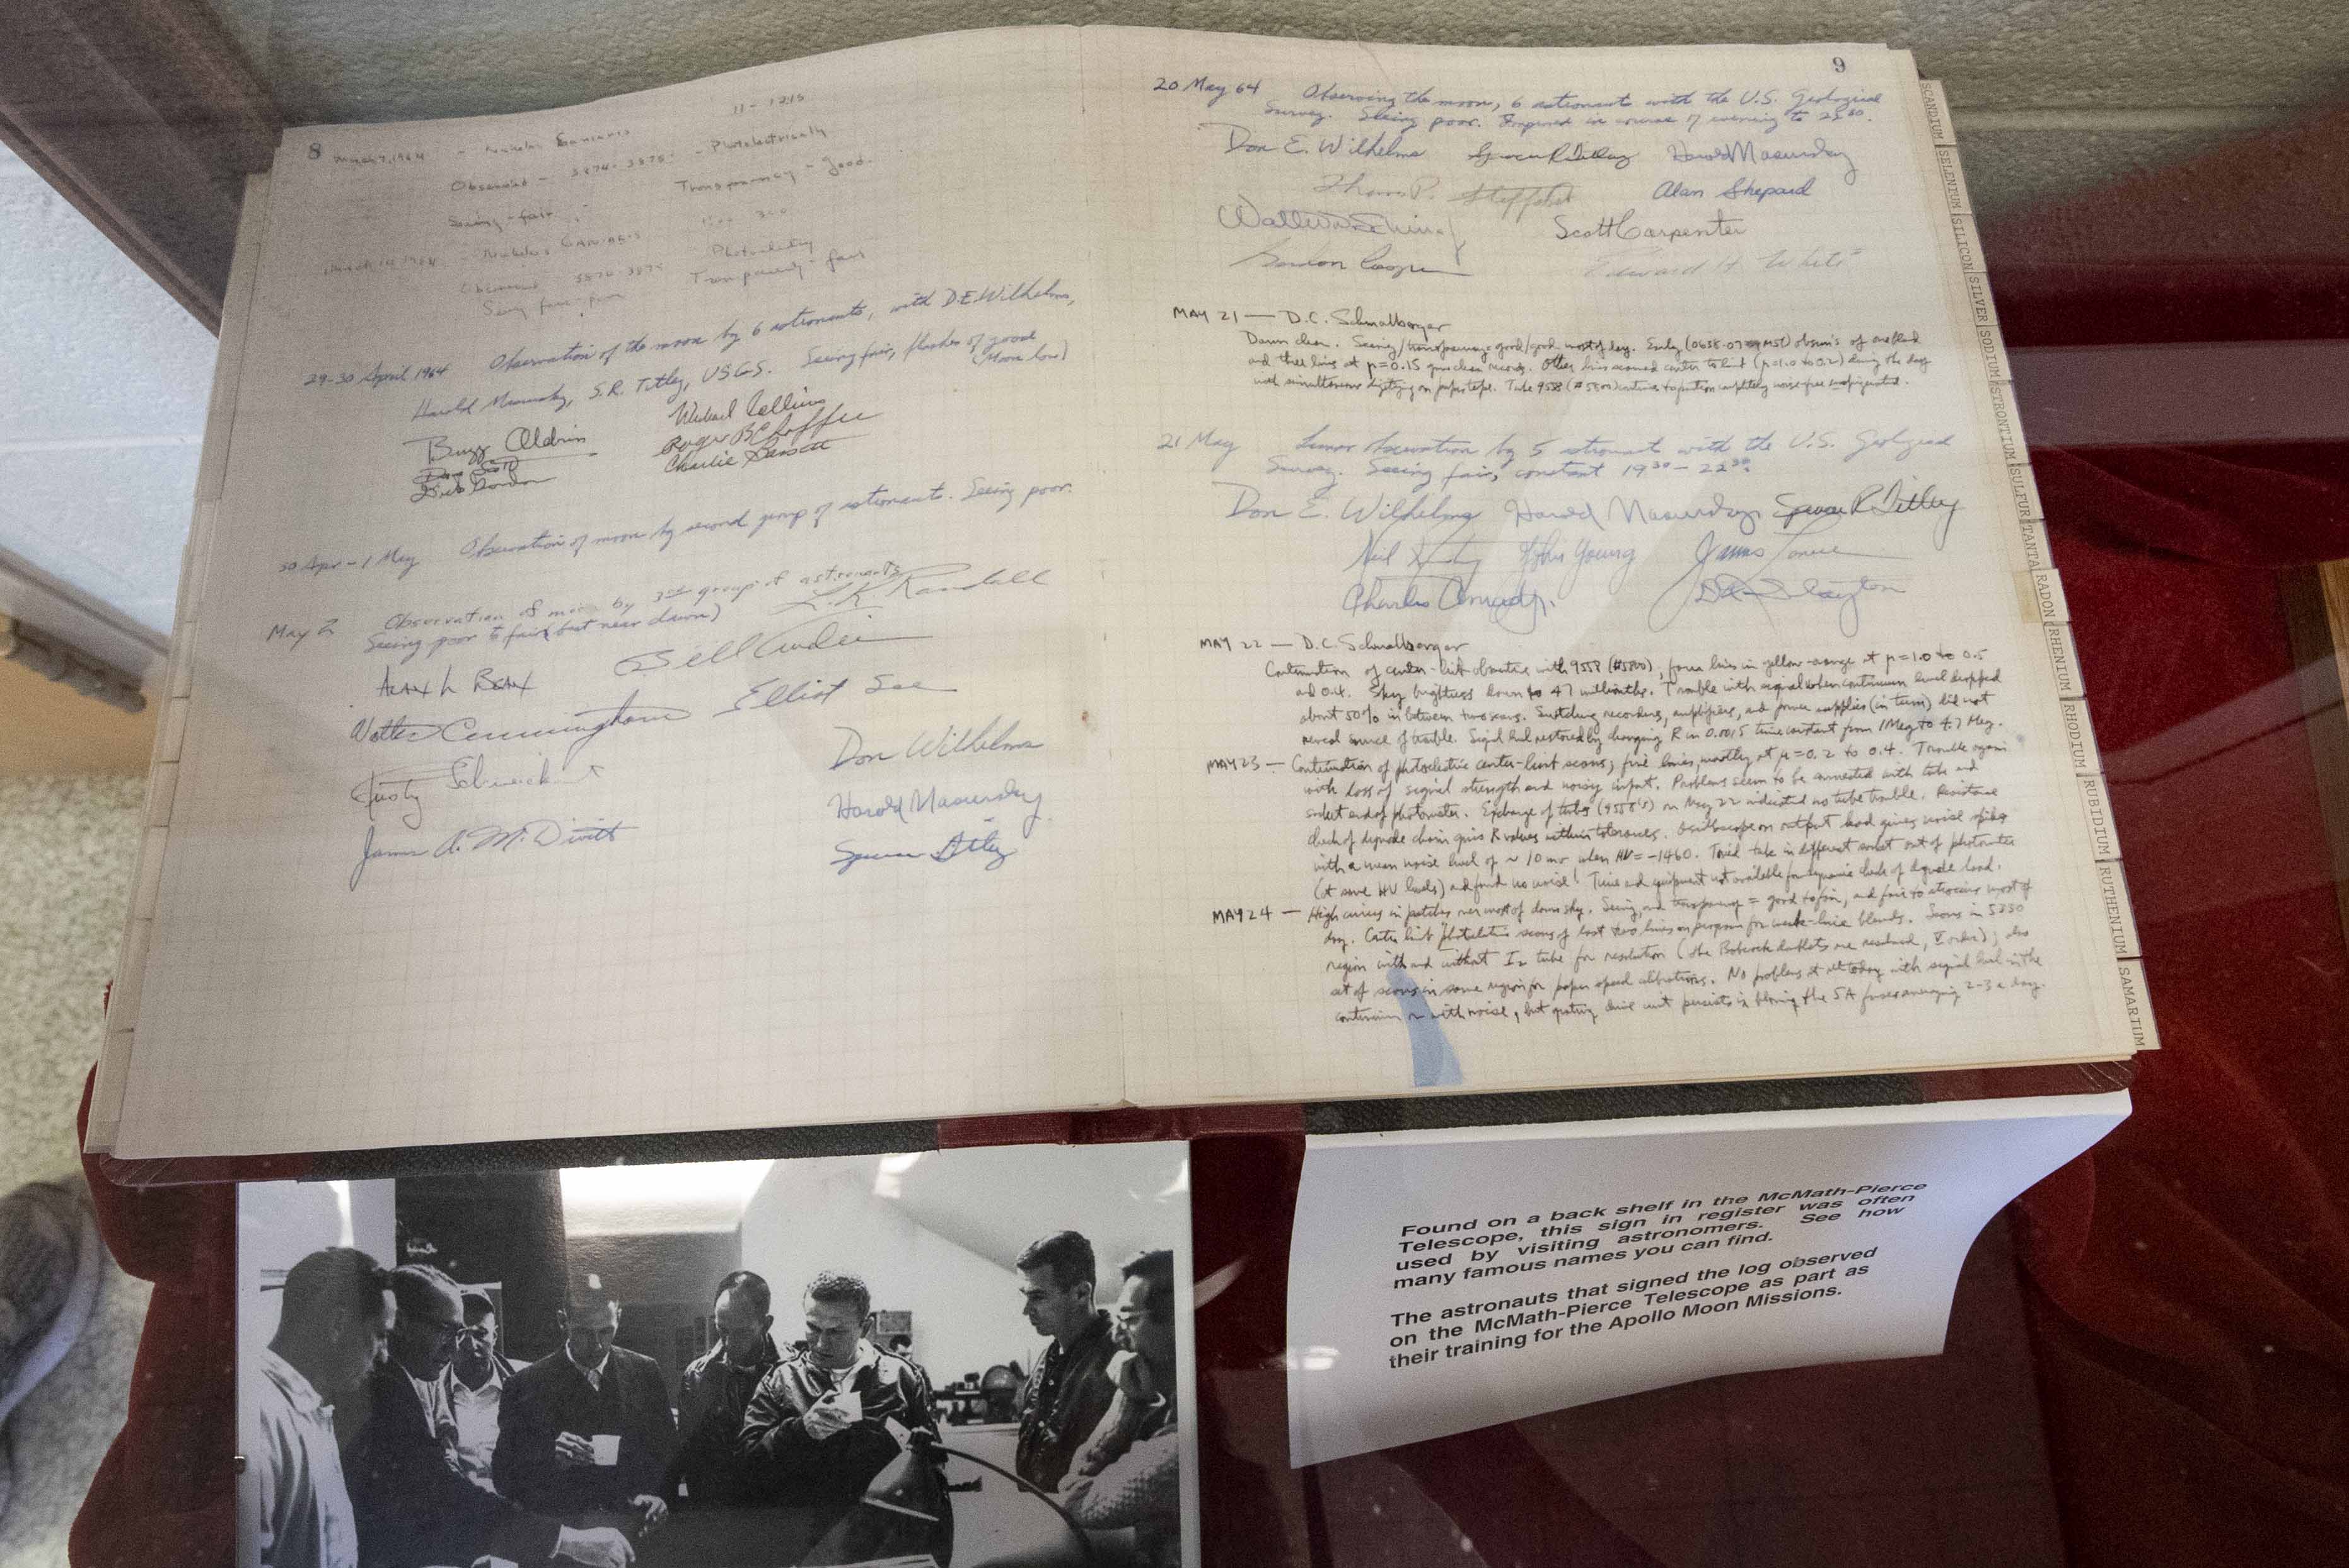 8
11 - 1215
March 7, 1964 - Nicholas
Observed - 3874-3875 - Photoelectrically
Seeing - fair Transparency - Good.
March 14, 1964 - Nicholas
Observed 3874-3875
Transparency - fair
29-30 April 1964 Observation of the moon by 6 astronauts, with D.E. Wilhelms,
Harold Masursky, S.R. Titley, USGS. Seeing fair, flashes of good
(Moon low)
Buzz Aldrin Michael Collins
Dave Scott Roger B Chaffee
Dick Gordon Charlie Bassett
30 Apr - 1 May Observation of moon by second group of astronauts. Seeing poor.
May 2 Observation of moon by 3rd group of astronauts
Seeing poor to fair (best near dawn) L.K. Randall
Alan L Bean Bill Anders
Walter Cunningham Elliot See
Rusty Schweickart Don Wilhelms
James A. McDivitt Harold Masursky
Spencer Titley
9
20 May 64 Observing the moon, 6 astronauts with the U.S. Geological
Survey. Seeing poor. Improved in course of evening to
Don E. Wilhelms Spencer R Titley Harold Masursky
Thomas P. Stafford Alan Shepard
Walter M Schirra Scott Carpenter
Gordon Cooper Edward H. White
MAY 21 — D.C. Schmalberger
Dawn clear. Seeing/transparency = good/good most of day. Early obsvn's of
and three lines at μ=0.15 records. Other lines scanned center to limb (μ=1.0 to 0.2) during the day
with simultaneous digitizing on paper tape. Tube 9558
21 May Lunar observation by 5 astronauts with the U.S. Geological
Survey. Seeing fair, constant 19³⁰ - 22³⁰.
Don E. Wilhelms Harold Masursky Spencer R Titley
Neil Armstrong John Young James Lovell
Charles Conrad Jr. D K Slayton
MAY 22 — D.C. Schmalberger
Continuation of center-limb observations with 9558 (#5800); four lines in yellow-orange at μ=1.0 to 0.5
and 0.4. Sky brightness down to 47 millionths. Trouble with signal when continuum level dropped
about 50% in between two scans. Switching recorders, amplifiers, and power supplies (in turn) did not
reveal source of trouble. Signal level restored by changing R in 0.0015 time constant from 1 Meg to 4.7 Meg.
MAY 23 - Continuation of photoelectric center-limb scans; five lines, mostly at μ=0.2 to 0.4. Trouble again
with loss of signal strength and noisy output. Problems seem to be connected with tube and
socket end of photometer. Exchange of tubes (9558's) on May 22 indicated no tube trouble. Resistance
check of dynode chain gives R values within tolerances. Oscilloscope on output lead gives noise spikes
with a mean noise level of ~ 10 mv when HV = -1460. Tried tube in different socket out of photometer
(at same HV levels) and found no noise! Time and equipment not available for dynamic check of dynode load.
MAY 24 — High cirrus in patches over most of dawn sky. Seeing and transparency = good to fair, and fair to atrocious most of
day. Center limb photoelectric scans of last two lines on program for weak-line blends. Scans in 5250
region with and without I₂ tube for resolution (the Babcock doublets are resolved, V order); also
set of scans in same region for paper speed calibrations. No problems at all today with signal level in the
continuum or with noise, but grating drive unit persists in blowing the 5A fuses averaging 2-3 a day.
SCANDIUM
SELENIUM
SILICON
SILVER
SODIUM
STRONTIUM
SULFUR
TANTA
RADON
RHENIUM
RHODIUM
RUBIDIUM
RUTHENIUM
SAMARIUM
Found on a back shelf in the McMath-Pierce
Telescope, this sign in register was often
used by visiting astronomers. See how
many famous names you can find.
The astronauts that signed the log observed
on the McMath-Pierce Telescope as part as
their training for the Apollo Moon Missions.